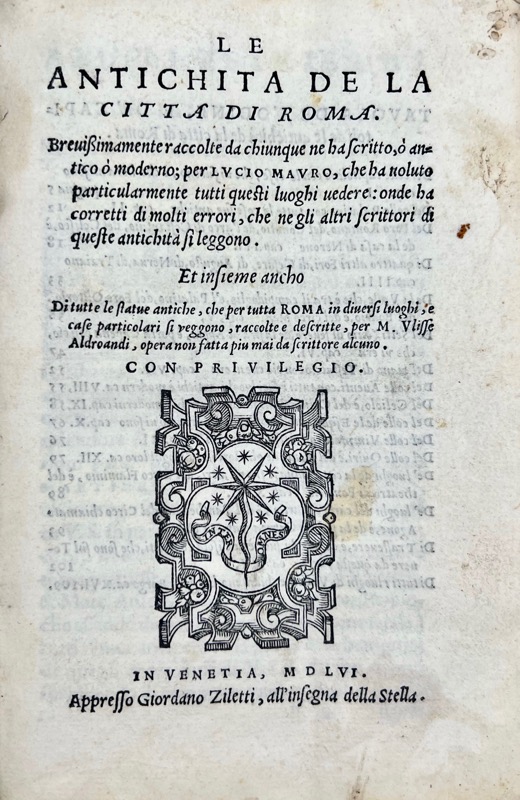 LE
ANTICHITA DE LA
CITTA DI ROMA.
Breuißimamente raccolte da chiunque ne ha ſcritto, ò an=
tico ò moderno; per LVCIO MAVRO, che ha uoluto
particularmente tutti queſti luoghi uedere: onde ha
corretti di molti errori, che ne gli altri ſcrittori di
queſte antichità ſi leggono.
Et inſieme ancho
Di tutte le ſtatue antiche, che per tutta ROMA in diuerſi luoghi, e
caſe particolari ſi veggono, raccolte e deſcritte, per M. Vliſſe
Aldroandi, opera non fatta piu mai da ſcrittore alcuno.
CON PRIVILEGIO.
IN VENETIA, M D LVI.
Appreſſo Giordano Ziletti, all'inſegna della Stella.